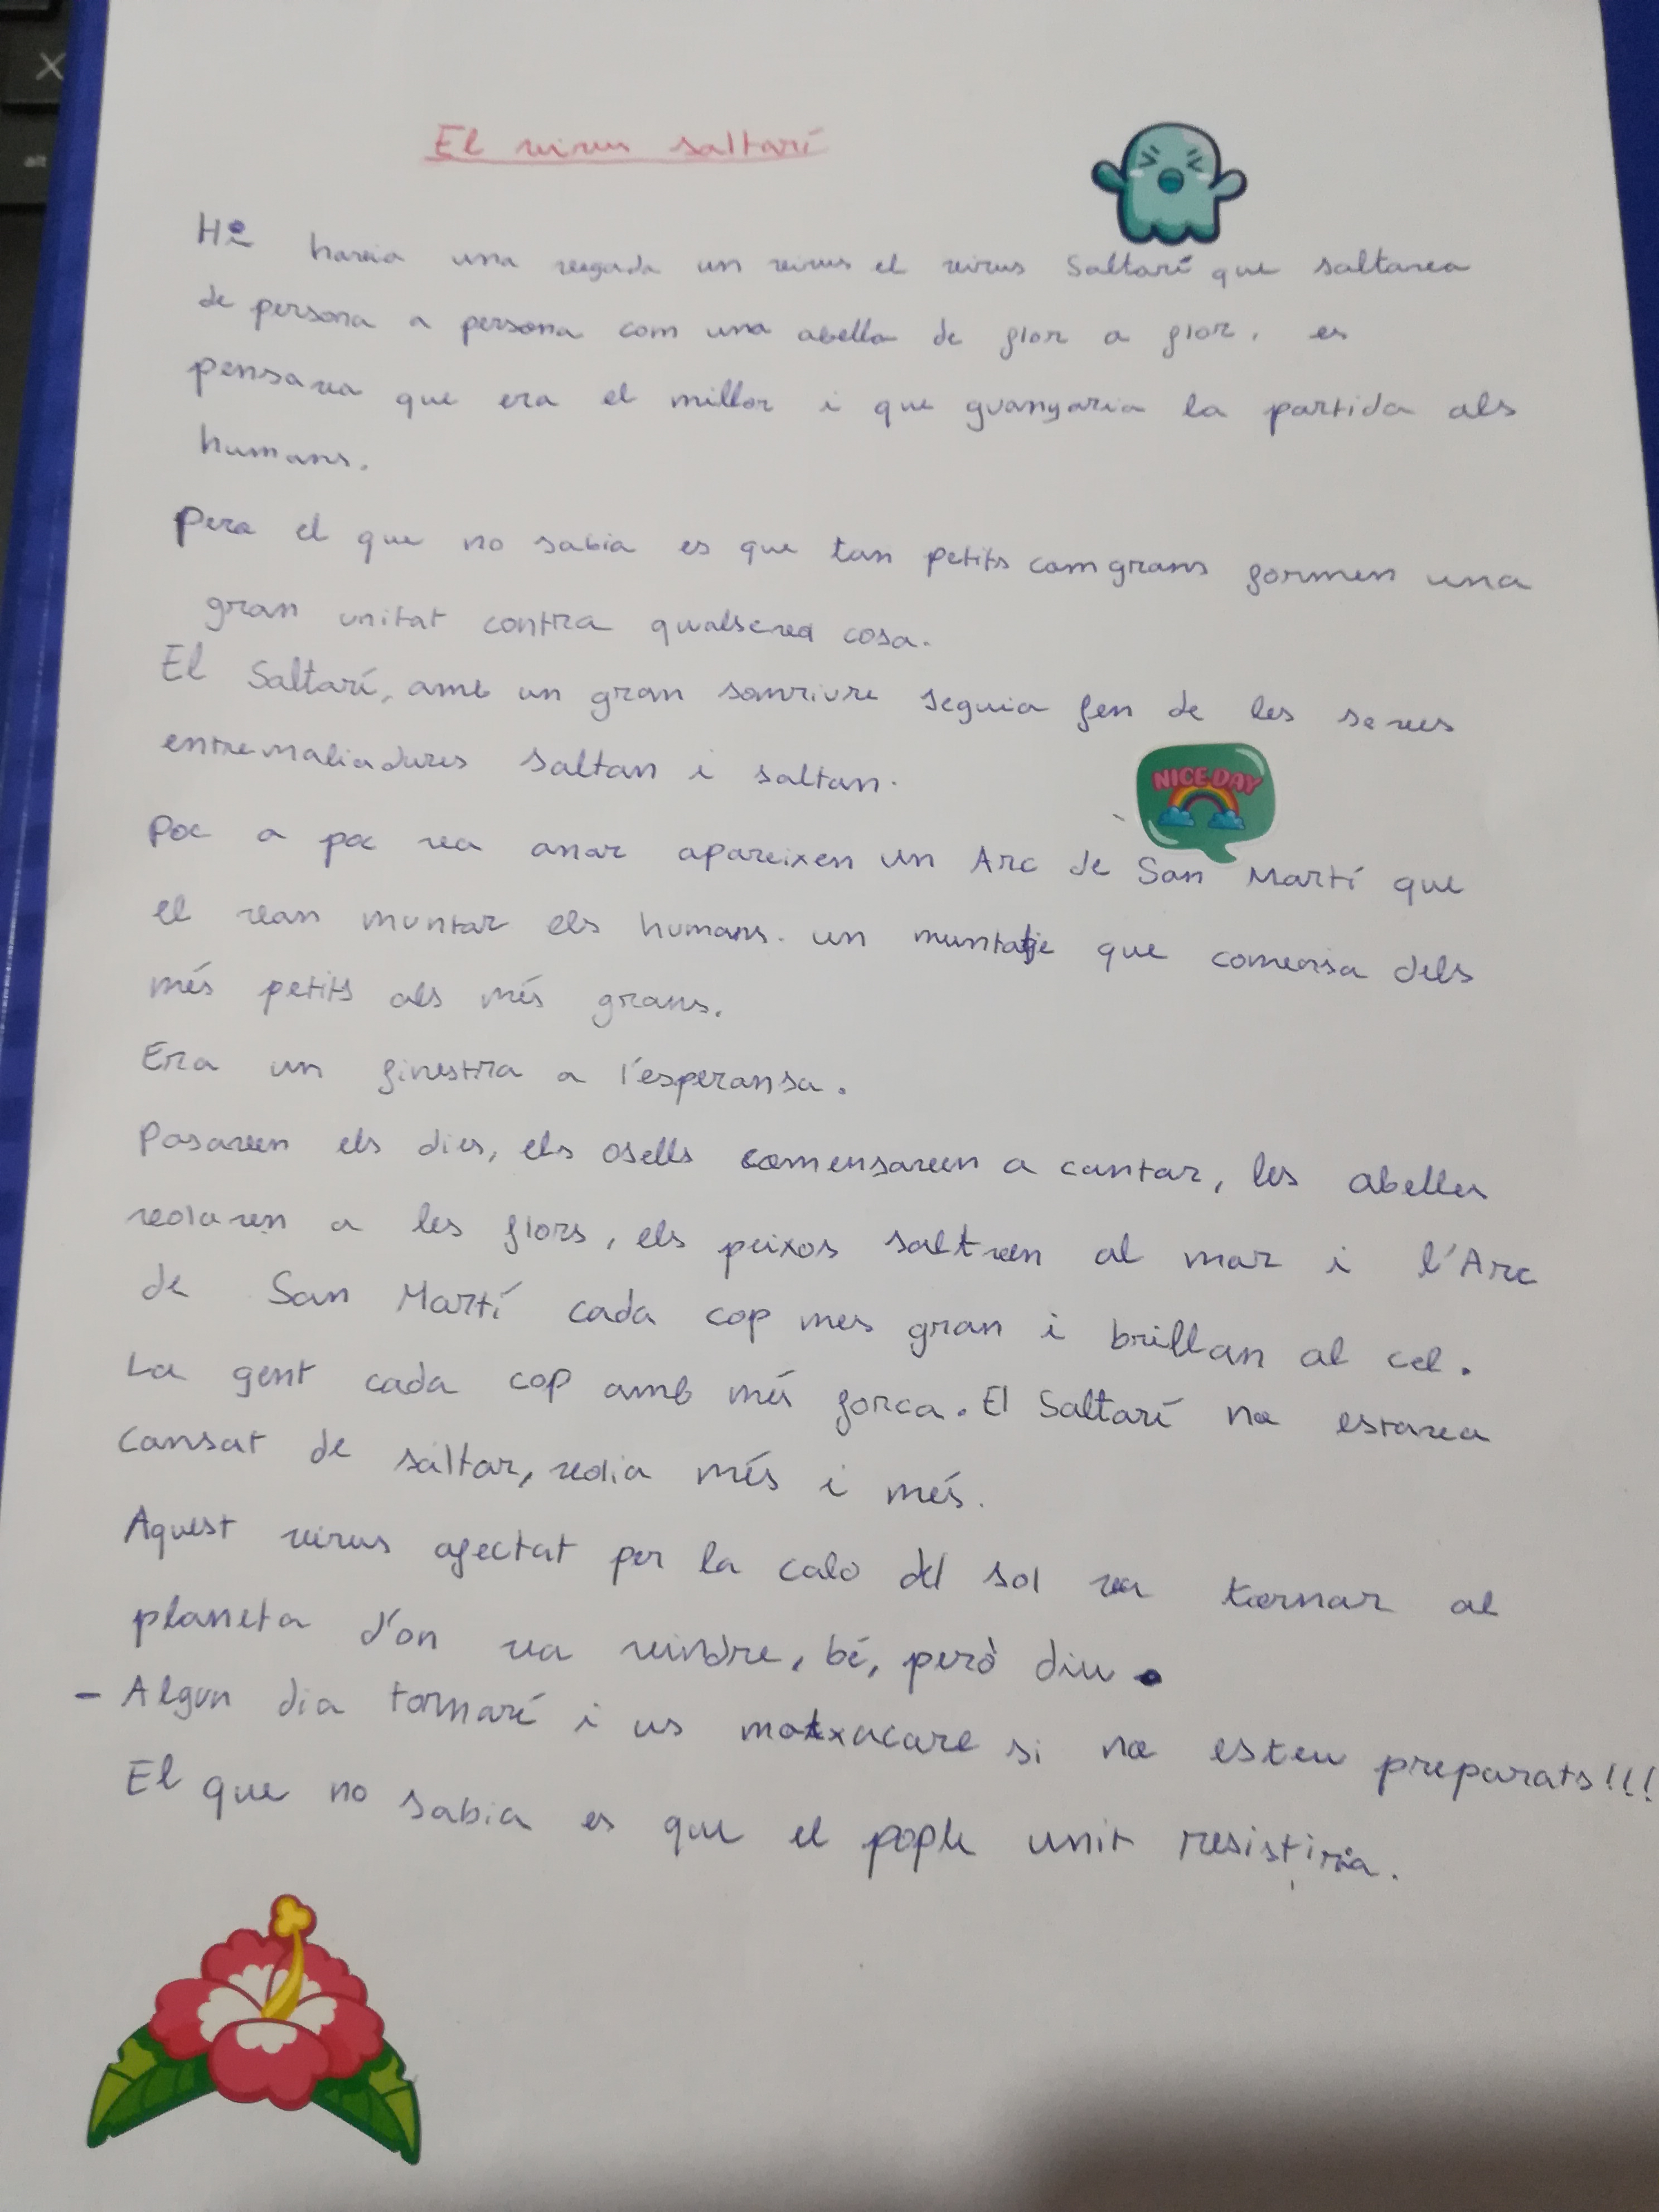 El virus saltarí
Hi havia una vegada un virus el virus Saltarí que saltava
de persona a persona com una abella de flor a flor, es
pensava que era el millor i que guanyaria la partida als
humans.
Pero el que no sabia es que tan petits com grans formen una
gran unitat contra qualseval cosa.
El Saltarí, amb un gran somriure seguia fen de les seves
entremaliadures saltan i saltan.
NICE DAY
Poc a poc va anar apareixen un Arc de San Martí que
el van muntar els humans. un muntatje que comensa dels
més petits als més grans.
Era un finestra a l'esperansa.
Pasaven els dies, els osells comensaven a cantar, les abelles
volaven a les flors, els peixos saltven al mar i l'Arc
de San Martí cada cop mes gran i brillan al cel.
La gent cada cop amb més forca. El Saltarí no estava
cansat de saltar, volia més i més.
Aquest virus afectat per la calo del sol va tornar al
planeta d'on va vindre, bé, però diu
- Algun dia tornaré i us matxacare si no esteu preparats!!!
El que no sabia es que el pople unit resistiria.
X
alt